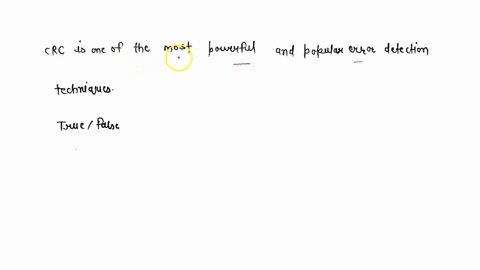 CRC is one of the most powerful and popular error detection
techniques.
True / False